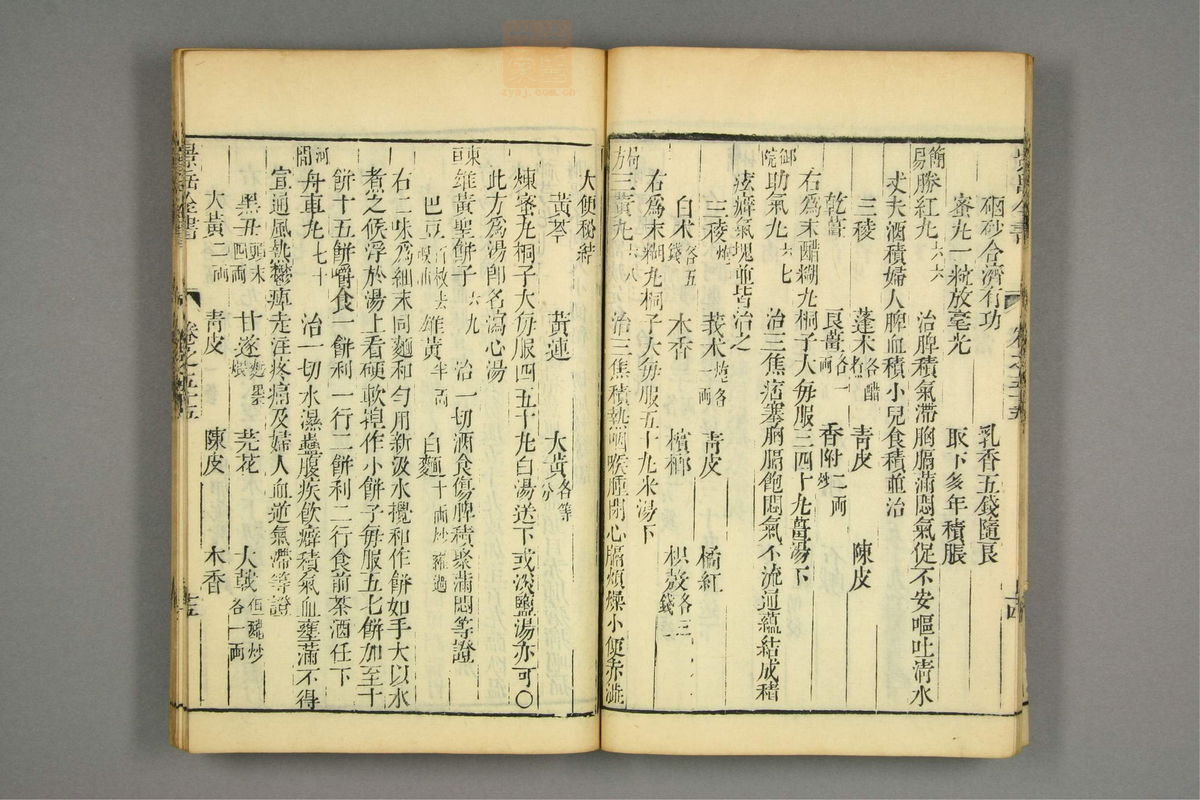 硇砂合濟有功　乳香五錢隨良
蜜丸一粒放毫光　取下多年積脹
簡易勝紅丸六六　治脾積氣滯胸膈滿悶氣促不安嘔吐清水
丈夫酒積婦人脾血積小兒食積並治
三稜　蓬术各醋炒　青皮　陳皮
乾薑　良薑各一兩　香附炒二兩
右爲末醋糊丸桐子大每服三四十丸薑湯下
御院助氣丸六七　治三焦痞塞胸膈飽悶氣不流通蘊結成積
痃癖氣塊並皆治之
三稜炮　莪术炮各一兩　青皮　橘紅
白术各五錢　木香　檳榔　枳殼各三錢
右爲末糊丸桐子大每服五十丸米湯下
局方三黃丸六八　治三焦積熱咽喉腫閉心膈煩燥小便赤澁
大便秘結
黃芩　黃連　大黃各等分
煉蜜丸桐子大每服四五十丸白湯送下或淡鹽湯亦可○
此方爲湯卽名瀉心湯
東垣雄黃聖餅子六九　治一切酒食傷脾積聚滿悶等證
巴豆百枚去　雄黃半兩　白麵十兩炒羅過
右二味爲細末同麵和勻用新汲水攪和作餅如手大以水
煮之候浮於湯上看硬軟搜作小餅子每服五七餅加至十
餅十五餅嚼食一餅利一行二餅利二行食前茶酒任下
河間舟車丸七十　治一切水濕蠱腹疾飲癖積氣血壅滿不得
宣通風熱鬱痺走注疼痛及婦人血逆氣滯等證
黑丑頭末四兩　甘遂麵裹煨　芫花　大戟俱醋炒各一兩
大黃二兩　青皮　陳皮　木香
景岳全書　卷之五十五